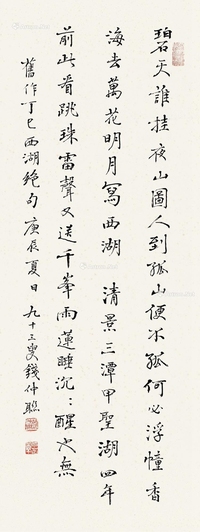 碧天誰挂夜山圖人到孤山便不孤何必浮幢香
海去萬花明月寫西湖 清景三潭甲聖湖四年
前此看跳珠雷聲又送千峯雨蓮睡沉〻醒也無
舊作丁巳西湖絶句庚辰夏日 九十三叟錢仲聯